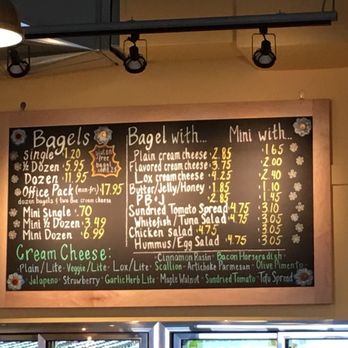 Bagels
Single • 1.20
½ Dozen • 5.95
Dozen • 11.95
Office Pack (mon-fri) • 17.95
dozen bagels & two 8oz cream cheese
Mini Single • .70
Mini ½ Dozen • 3.49
Mini Dozen • 6.99
Gluten
free
Bagel
Bagel with...
Mini with...
Plain cream cheese • 2.85 • 1.65
Flavored cream cheese • 3.75 • 2.00
Lox cream cheese • 4.25 • 2.40
Butter/Jelly/Honey • 1.85 • 1.10
PB•J • 2.85 • 1.45
Sundried Tomato Spread • 4.75 • 3.10
Whitefish/Tuna Salad • 4.75 • 3.05
Chicken salad • 4.75 • 3.05
Hummus/Egg Salad • 4.75 • 3.05
Cream Cheese:
Cinnamon Raisin • Bacon Horseradish •
Plain/Lite • Veggie/Lite • Lox/Lite • Scallion • Artichoke Parmesan • Olive Pimento •
Jalapeno • Strawberry • Garlic Herb Lite • Maple Walnut • Sundried Tomato • Tofu Spread